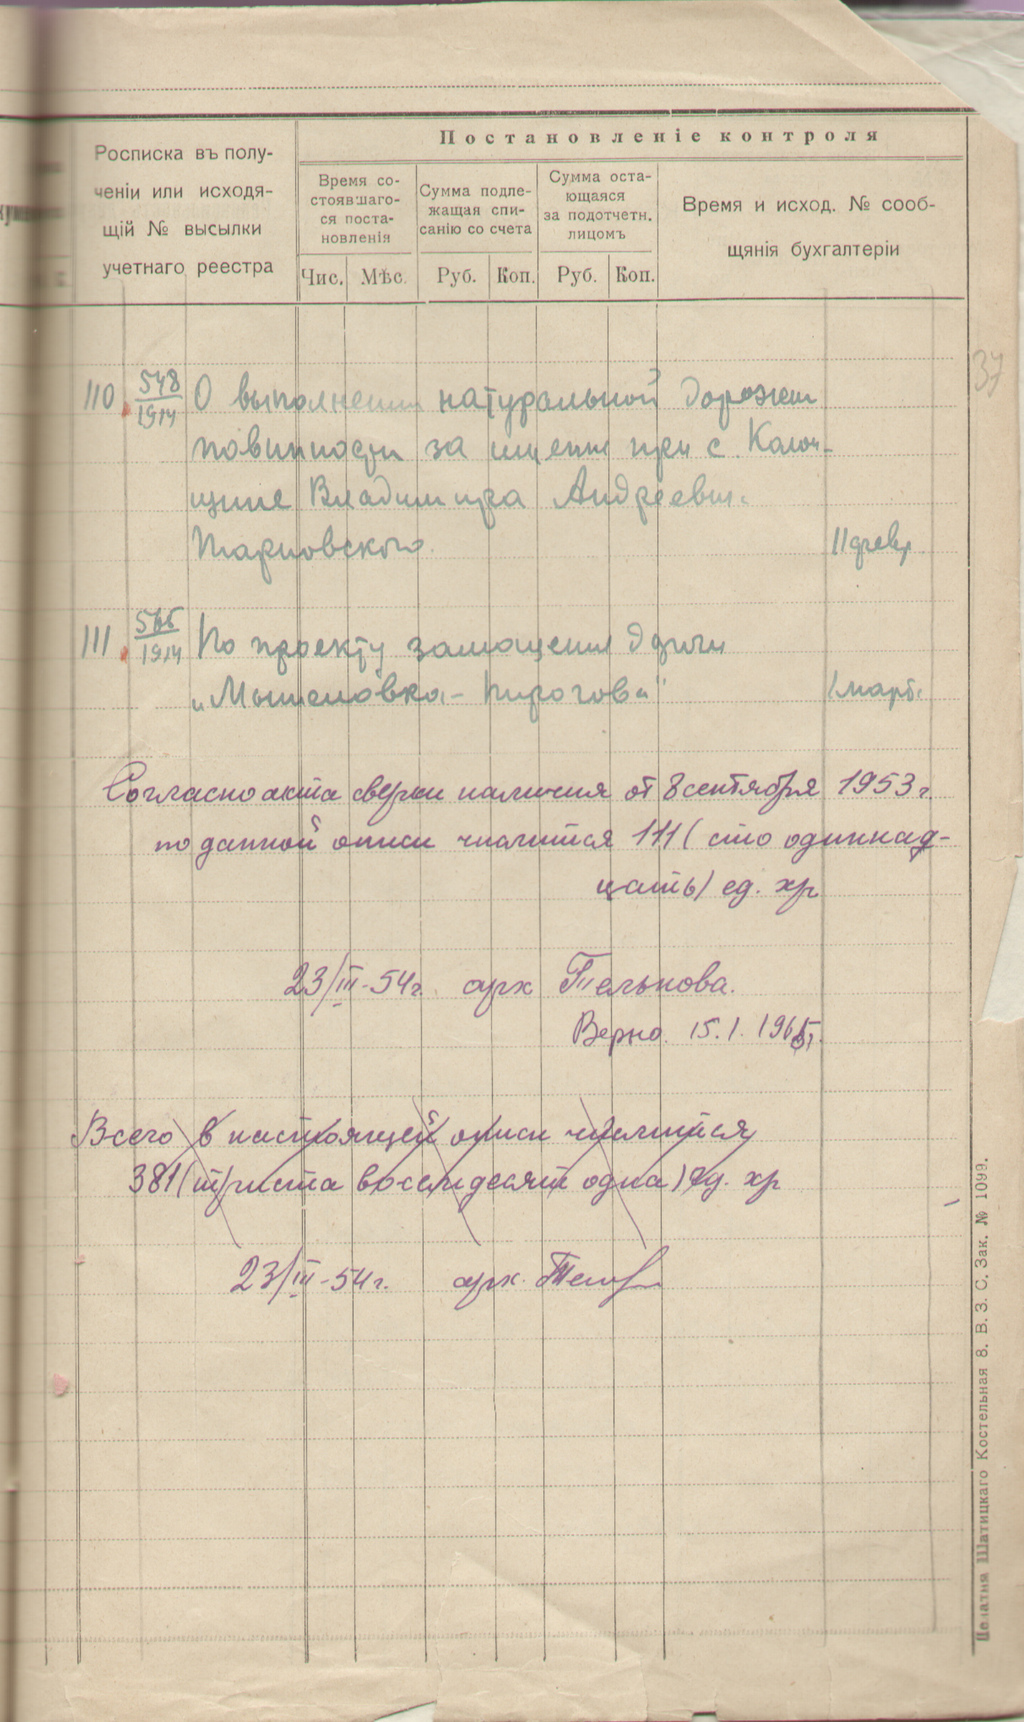 Постановленіе контроля
Росписка въ полу-
ченіи или исходя-
щій № высылки
учетнаго реестра
Время со-
стоявшаго-
ся поста-
новленія
Сумма подле-
жащая спи-
санію со счета
Сумма оста-
ющаяся
за подотчетн.
лицомъ
Время и исход. № сооб-
щянія бухгалтеріи
Чис. Мѣс. Руб. Коп. Руб. Коп.
37
110. 548/1914 О выполнении натуральной дорожн
повинности за имение при с.
Владимира Андреевич.
Тарновского. 11 февр
111. 1914 По проекту замощения дороги
„Мышеловка-Пирогова" 1 март.
Согласно акта сверки наличия от 8 сентября 1953 г.
по данной описи числится 111 (сто одиннад-
цать) ед. хр
23/III-54г. арх Телькова.
Верно 15.1.
Всего в настоящей описи числится
381 (триста восемьдесят одна) ед. хр
23/III-54г. арх.
Шатицкаго Костельная 8. В. З. С. Зак. № 1099.